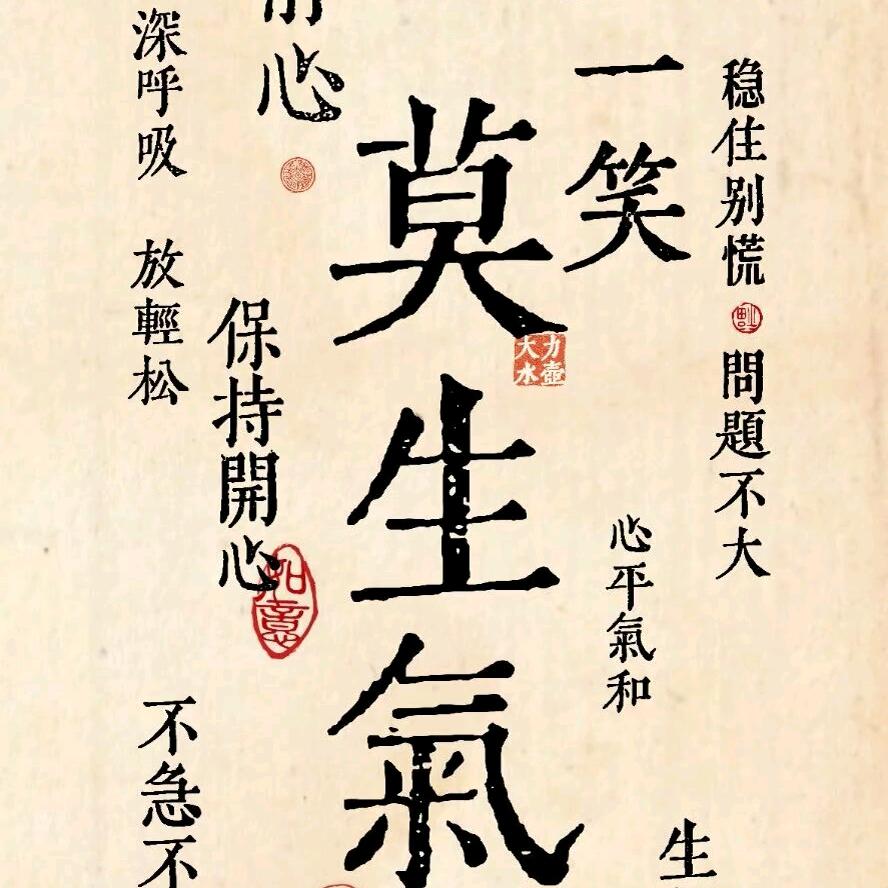 稳住别慌
問題不大
一笑
心平氣和
生
莫生氣
力壺
大水
心
保持開心
如意
深呼吸
放輕松
不急不